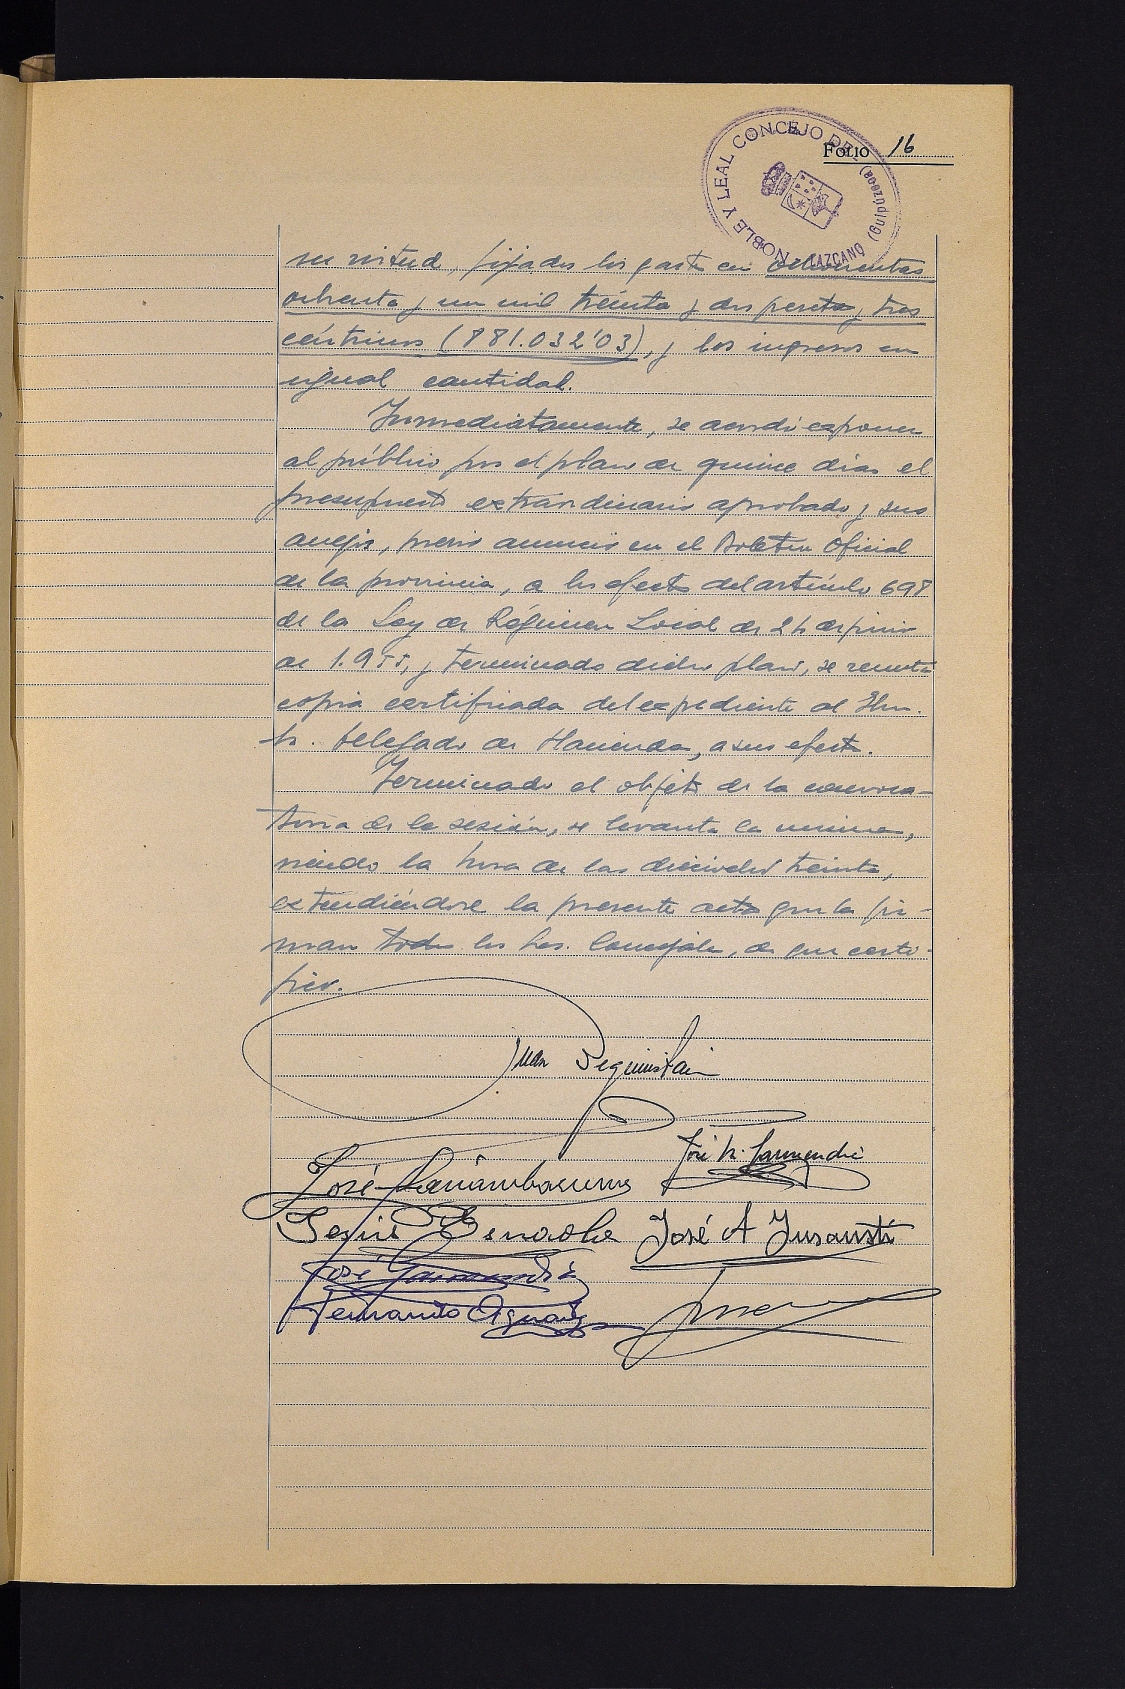 NOBLE Y LEAL CONCEJO DE LAZCANO (Guipúzcoa)
FOLIO 16
su virtud, fijados los gastos en ochocientas
ochenta y un mil treinta y dos pesetas, tres
céntimos (881.032'03), y los ingresos en
igual cantidad.
Inmediatamente, se acordó exponer
al público por el plazo de quince dias el
presupuesto extraordinario aprobado y sus
anejos, previo anuncio en el Boletin Oficial
de la provincia, a los efectos del artículo 698
de la Ley de Régimen Local de 24 de junio
de 1.955, y terminado dicho plazo, se remita
copia certificada del expediente al Ilmo.
Sr. Delegado de Hacienda, a sus efectos.
Terminado el objeto de la convoca-
toria de la sesión, se levanta la misma,
siendo la hora de las treinta,
extendiéndose la presente acta que la fir-
man todos los Srs. Concejales, de que certi-
fico.
Juan Seguistain
José
José A. Insausti
José Garmendia
Fernando